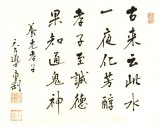 古来云此水
一夜化芳醇
孝子至誠徳
果知通鬼神
養老孝子